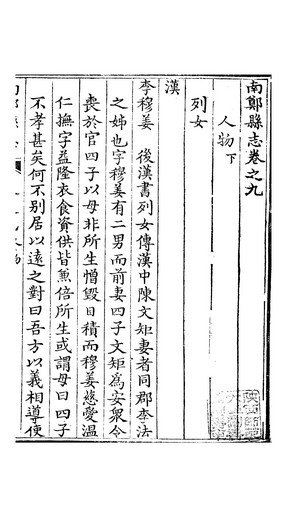 南鄭縣志卷之九
人物下
列女
漢
李穆姜 後漢書列女傳漢中陳文矩妻者同郡李法
之姊也字穆姜有二男而前妻四子文矩為安衆令
喪於官四子以母非所生憎毀日積而穆姜慈愛溫
仁撫字益隆衣食資供皆兼倍所生或謂母曰四子
不孝甚矣何不别居以遠之對曰吾方以義相導使